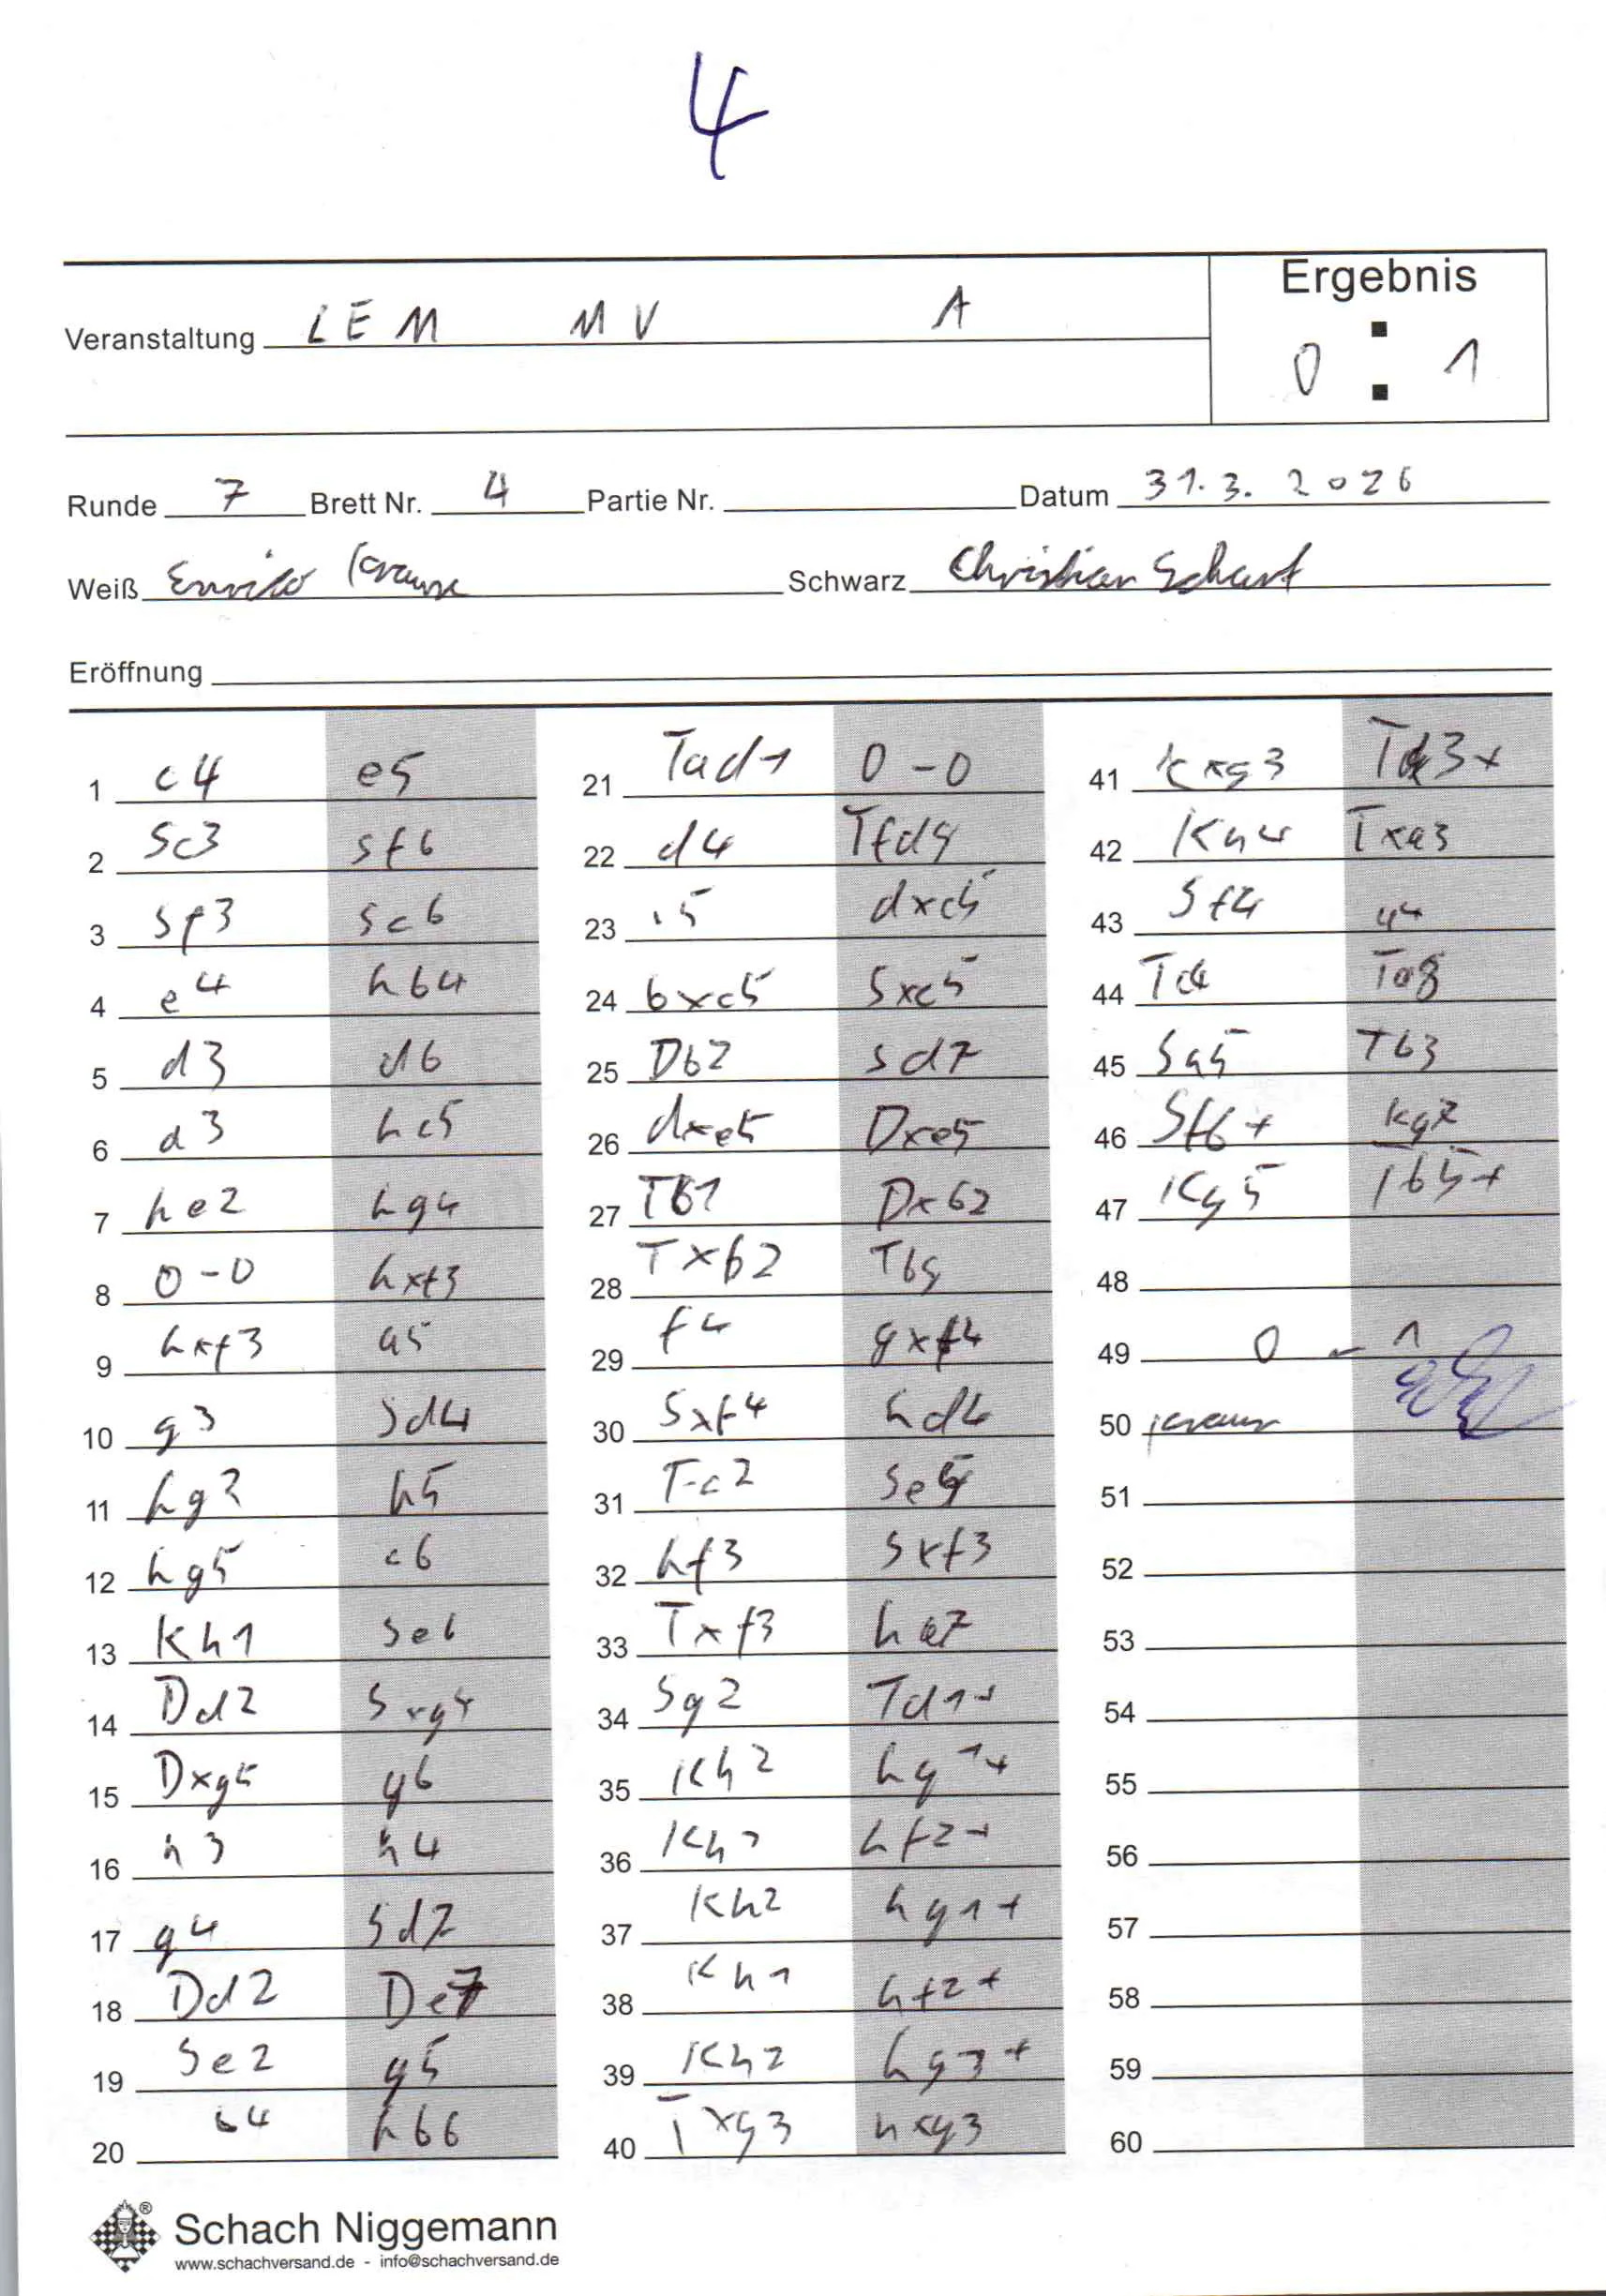 4
Ergebnis
Veranstaltung LEM MV A
0 : 1
Runde 7 Brett Nr. 4 Partie Nr. Datum 31.3.2026
Weiß Enrico Krause Schwarz Christian Scharf
Eröffnung
1 c4 e5
2 Sc3 Sf6
3 Sf3 Sc6
4 e4 hb4
5 d3 d6
6 a3 hc5
7 he2 hg4
8 0-0 hxf3
9 hxf3 a5
10 g3 Sd4
11 hg2 h5
12 hg5 c6
13 Kh1 Se6
14 Dd2 Sxg5
15 Dxg5 g6
16 h3 h4
17 g4 Sd7
18 Dd2 De7
19 Se2 g5
20 b4 hb6
21 Tad1 0-0
22 d4 Tfd8
23 c5 dxc5
24 bxc5 Sxc5
25 Db2 Sd7
26 dxe5 Dxe5
27 Tb1 Dxb2
28 Txb2 Tb8
29 f4 gxf4
30 Sxf4 hd4
31 Tc2 Se5
32 hf3 Sxf3
33 Txf3 ha7
34 Sg2 Td1+
35 Kh2 hg1+
36 Kh1 hf2+
37 Kh2 hg1+
38 Kh1 hf2+
39 Kh2 hg3+
40 Txg3 hxg3
41 Kxg3 Td3+
42 Kh4 Txa3
43 Sf4 a4
44 Ta8
45 Sg5 Tb3
46 Sf6+ Kg7
47 Kg5 Tb5+
48
49 0 - 1
50 Krause
51
52
53
54
55
56
57
58
59
60
Schach Niggemann
www.schachversand.de - info@schachversand.de